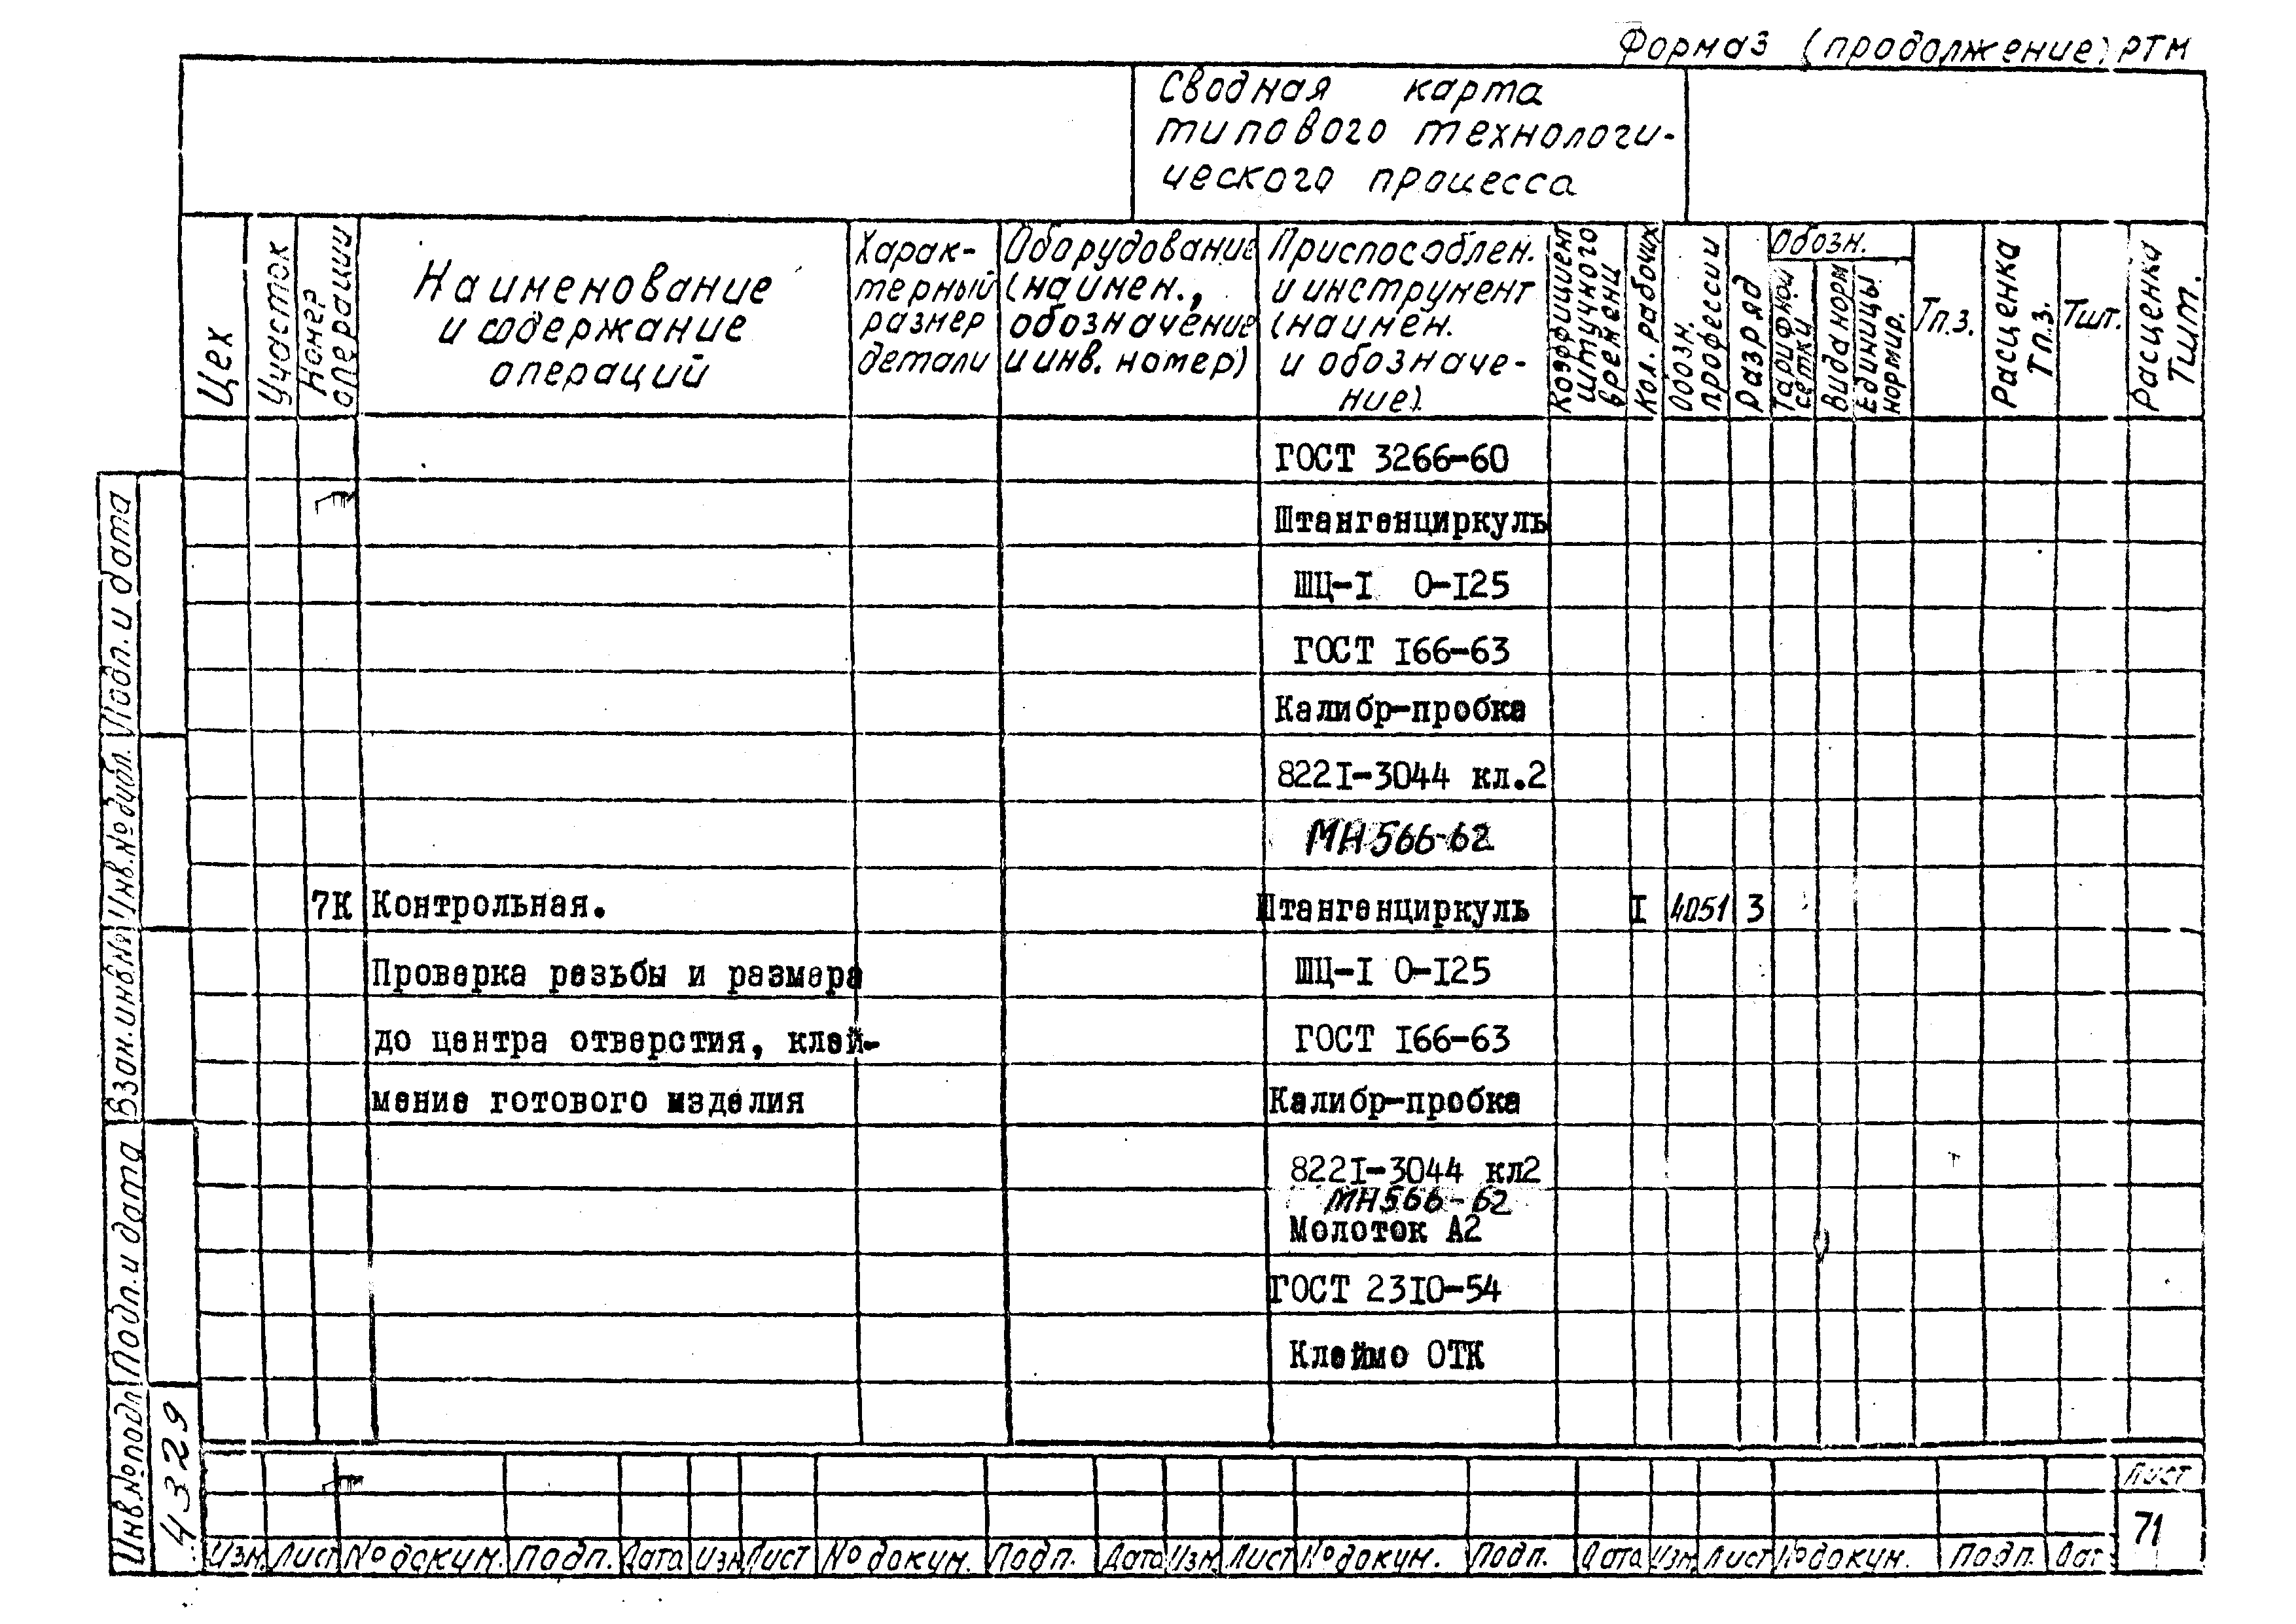 Форма3 (продолжение) РТМ
Сводная карта
типового технологи-
ческого процесса
Цех
Участок
Номер
операции
Наименование
и содержание
операций
Харак-
терный
размер
детали
Оборудование
(наимен.,
обозначение
и инв. номер)
Приспособлен.
и инструмент
(наимен.
и обозначе-
ние).
Коэффициент
штучного
времени
Кол. рабочих
Обозн.
профессии
Разряд
Обозн.
Тарифной
сетки
Вида норм
Единицы
нормир.
Тп.з.
Расценка
Тп.з.
Тшт.
Расценка
Тшт.
ГОСТ 3266-60
Штангенциркуль
ШЦ-I 0-I25
ГОСТ I66-63
Калибр-пробка
822I-3044 кл.2
МН 566-62
7К Контрольная. Штангенциркуль I 4051 3
Проверка резьбы и размера ШЦ-I 0-I25
до центра отверстия, клей- ГОСТ I66-63
мение готового изделия Калибр-пробка
822I-3044 кл2
МН566-62
Молоток А2
ГОСТ 23I0-54
Клеймо ОТК
Подп. и дата
Инв.№дубл.
Взам.инв№
Подп. и дата
Инв.№подл
4329
Лист
71
Изм. Лист № докум. Подп. Дата Изм Лист № докум. Подп. Дата Изм. Лист № докум. Подп. Дата Изм. Лист № докум. Подп. Дат